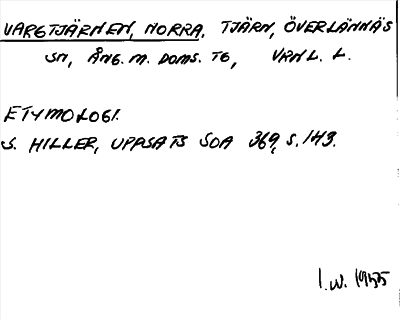 VARGTJÄRNEN, NORRA. TJÄRN, ÖVERLÄNNÄS
SN, ÅNG. M. DOMS. TG, VRNL. L.
ETYMOLOGI.
S. HILLER, UPPSATS SOA 369, S. 143.
I.W. 1955